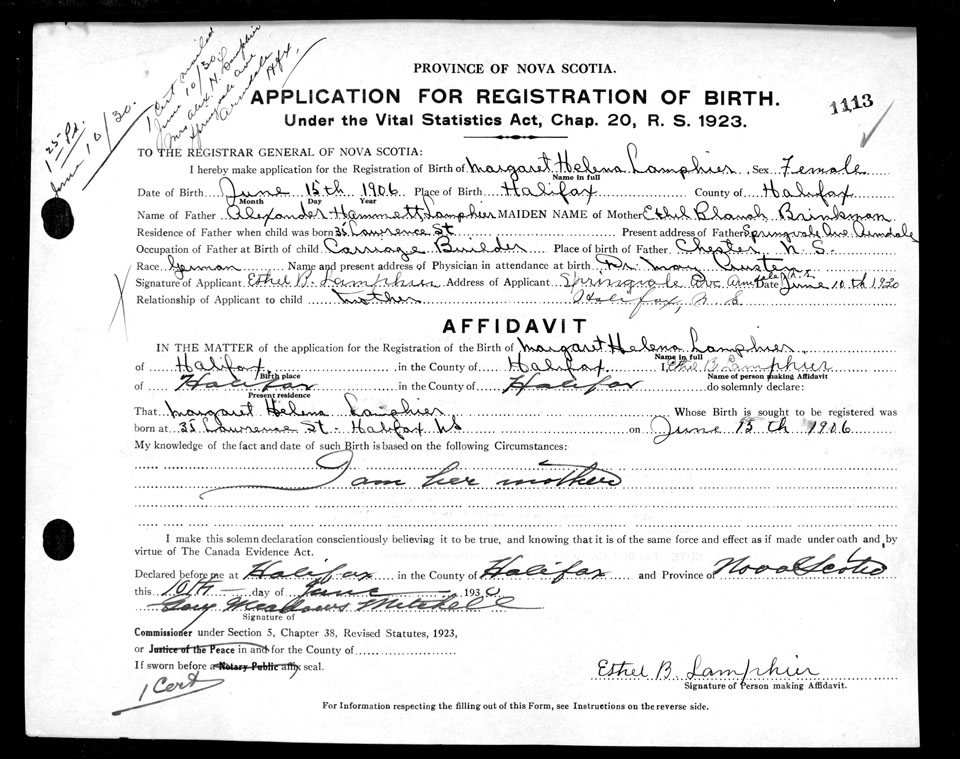 1.25 Pd.
June 10/30.
1 Cert mailed
June 10/30
Mrs Alex. H. Lamphier
Springvale Ave
Armdale
Hfx.
PROVINCE OF NOVA SCOTIA.
APPLICATION FOR REGISTRATION OF BIRTH.
1113
Under the Vital Statistics Act, Chap. 20, R. S. 1923.
TO THE REGISTRAR GENERAL OF NOVA SCOTIA:
I hereby make application for the Registration of Birth of Margaret Helena Lamphier Sex Female
Name in full
Date of Birth June 15th 1906 Place of Birth Halifax County of Halifax
Month Day Year
Name of Father Alexander Hammett Lamphier MAIDEN NAME of Mother Ethel Blanch Brinkman
Residence of Father when child was born 35 Lawrence St Present address of Father Springvale Ave Armdale
Occupation of Father at Birth of child Carriage Builder Place of birth of Father Chester N. S.
Race German Name and present address of Physician in attendance at birth Dr.
Signature of Applicant Ethel B. Lamphier Address of Applicant Springvale Ave Armdale N.S Date June 10th 1930
Relationship of Applicant to child Mother Halifax, N. S
AFFIDAVIT
IN THE MATTER of the application for the Registration of the Birth of Margaret Helena Lamphier
Name in full
of Halifax in the County of Halifax I, Ethel B Lamphier
Birth place Name of person making Affidavit
of Halifax in the County of Halifax do solemnly declare:
Present residence
That Margaret Helena Lamphier Whose Birth is sought to be registered was
born at 35 Lawrence St. Halifax NS on June 15th 1906
My knowledge of the fact and date of such Birth is based on the following Circumstances:
I am her mother
I make this solemn declaration conscientiously believing it to be true, and knowing that it is of the same force and effect as if made under oath and by
virtue of The Canada Evidence Act.
Declared before me at Halifax in the County of Halifax and Province of Nova Scotia
this 10th day of June 1930
Meadows Mitchell
Signature of
Commissioner under Section 5, Chapter 38, Revised Statutes, 1923,
or Justice of the Peace in and for the County of
If sworn before a Notary Public affix seal.
1 Cert
Ethel B Lamphier
Signature of Person making Affidavit.
For Information respecting the filling out of this Form, see Instructions on the reverse side.